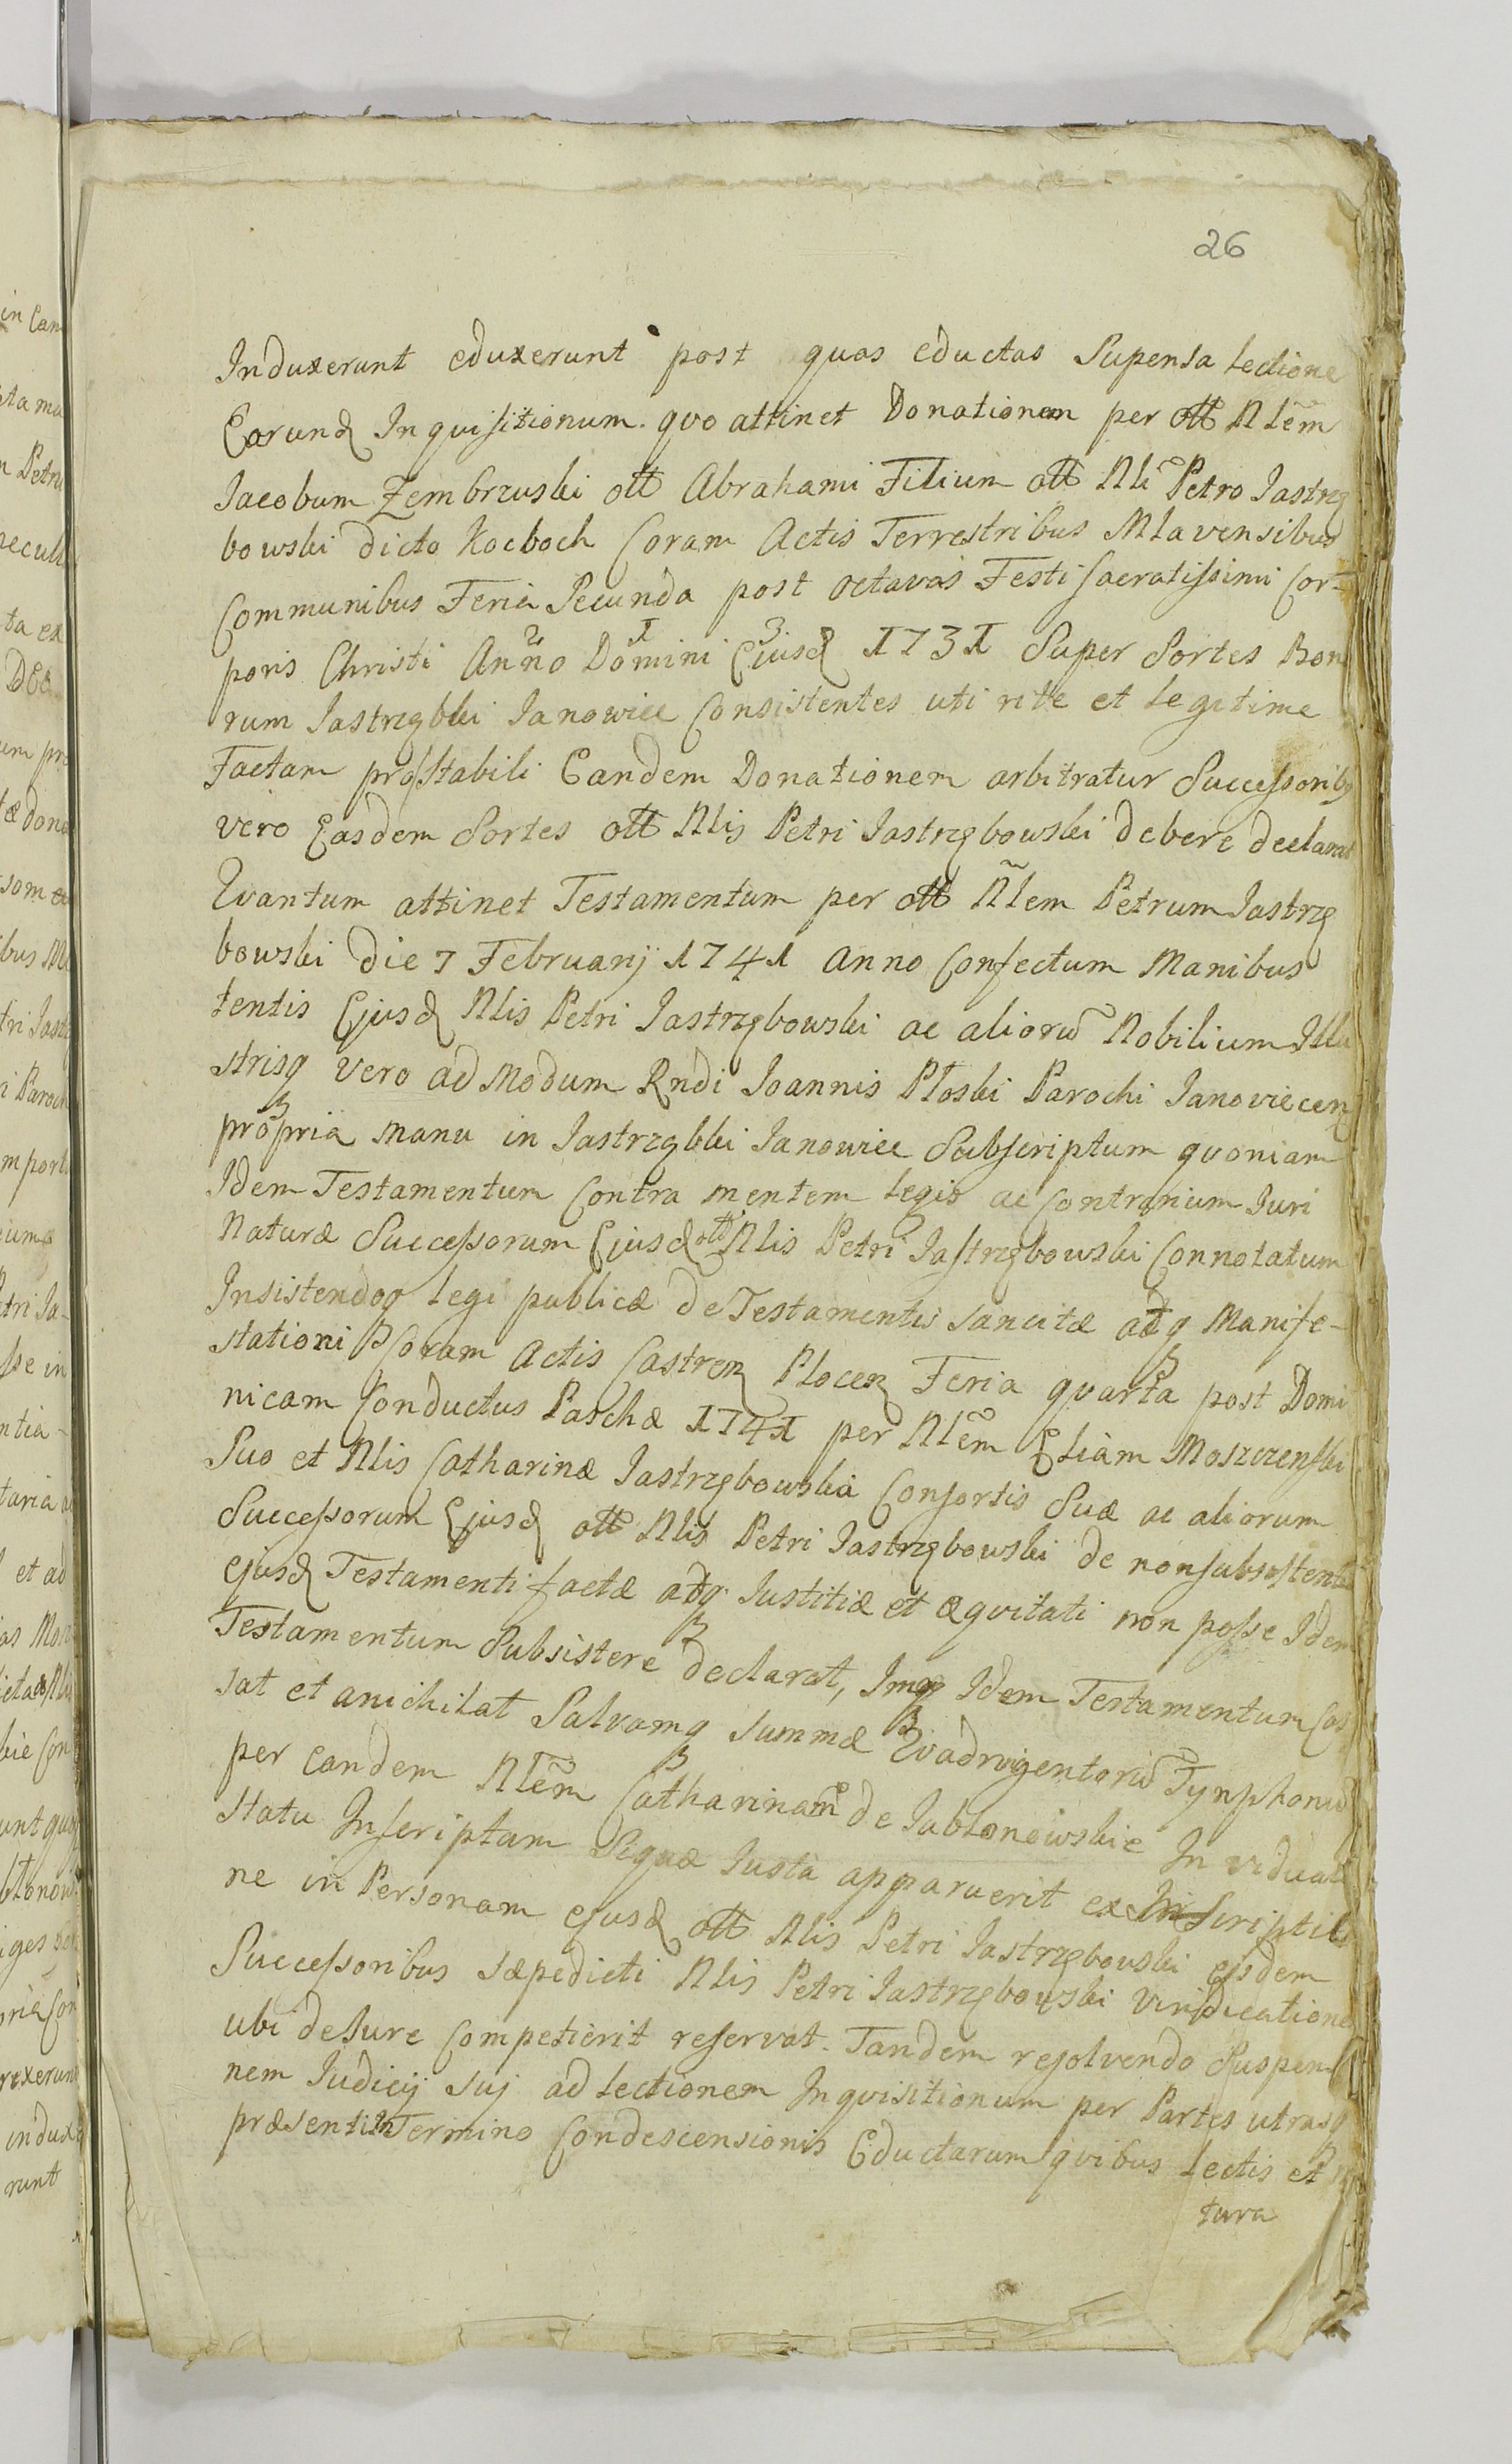 26
Induxerunt eduxerunt post quas eductas Supensa lectione
Earund Inquisitionum. quo attinet Donationem per ott Nlem
Jacobum Zembrzuski ott Abrahami Filium ott Nli Petro Jastrzę
bowski dicto Kocboch Coram Actis Terrestribus Mlavensibus
Communibus Feria Secunda post octavas Festi Sacratissimi Cor-
poris Christi Anno Domini Ejusd 1731 Super Sortes Bono
rum Jastrzębki Janowice Consistentes uti rite et legitime
Factam pro stabili Eandem Donationem arbitratur Successoribq
vero Easdem Sortes ott Nlis Petri Jastrzębowski debere declarat
Quantum attinet Testamentum per ott Nlem Petrum Jastrzę
bowski die 7 Februarij 1741 anno Confectum Manibus
tentis Ejusd Nlis Petri Jastrzębowski ac aliorum Nobilium Illu
strisq vero ad Modum Rndi Joannis Płoski Parochi Janoviecen
propria manu in Jastrzębki Janowice Subscriptum quoniam
Idem Testamentum Contra mentem legis ac Contrarium Juri
Naturæ Successorum Ejusd ott Nlis Petri Jastrzębowski Connotatum
Insistendoq legi publicæ de Testamentis sancitæ adq Manife-
stationi Coram Actis Castren Plocen Feria quarta post Domi
nicam Conductus Paschæ 1741 per Nlem Eliam Moszczenski
Suo et Nlis Catharinæ Jastrzębowska Consortis Suæ ac aliorum
Successorum Ejusd ott Nlis Petri Jastrzębowski de non subsistentia
ejusd Testamenti factæ adq Justitiæ et æquitati non posse Idem
Testamentum Subsistere declarat, Imo Idem Testamentum Cas
sat et anichilat Salvamq summæ Quadringentorum Tynphonum
per eandem Nlem Catharinam de Jabłonowskie In viduali
statu Inscriptam Siquæ Justa apparuerit ex Inscriptio
ne in Personam ejusd ott Nlis Petri Jastrzębowski ejsdem
Successoribus sæpedicti Nlis Petri Jastrzębowski Vindicatione
ubi de Jure Competierit reservat. Tandem resolvendo Suspensio
nem Judicij suj ad lectionem Inquisitionum per Partes utrasq
præsenti In Termino Condescensionis Eductarum quibus lectis et
tura